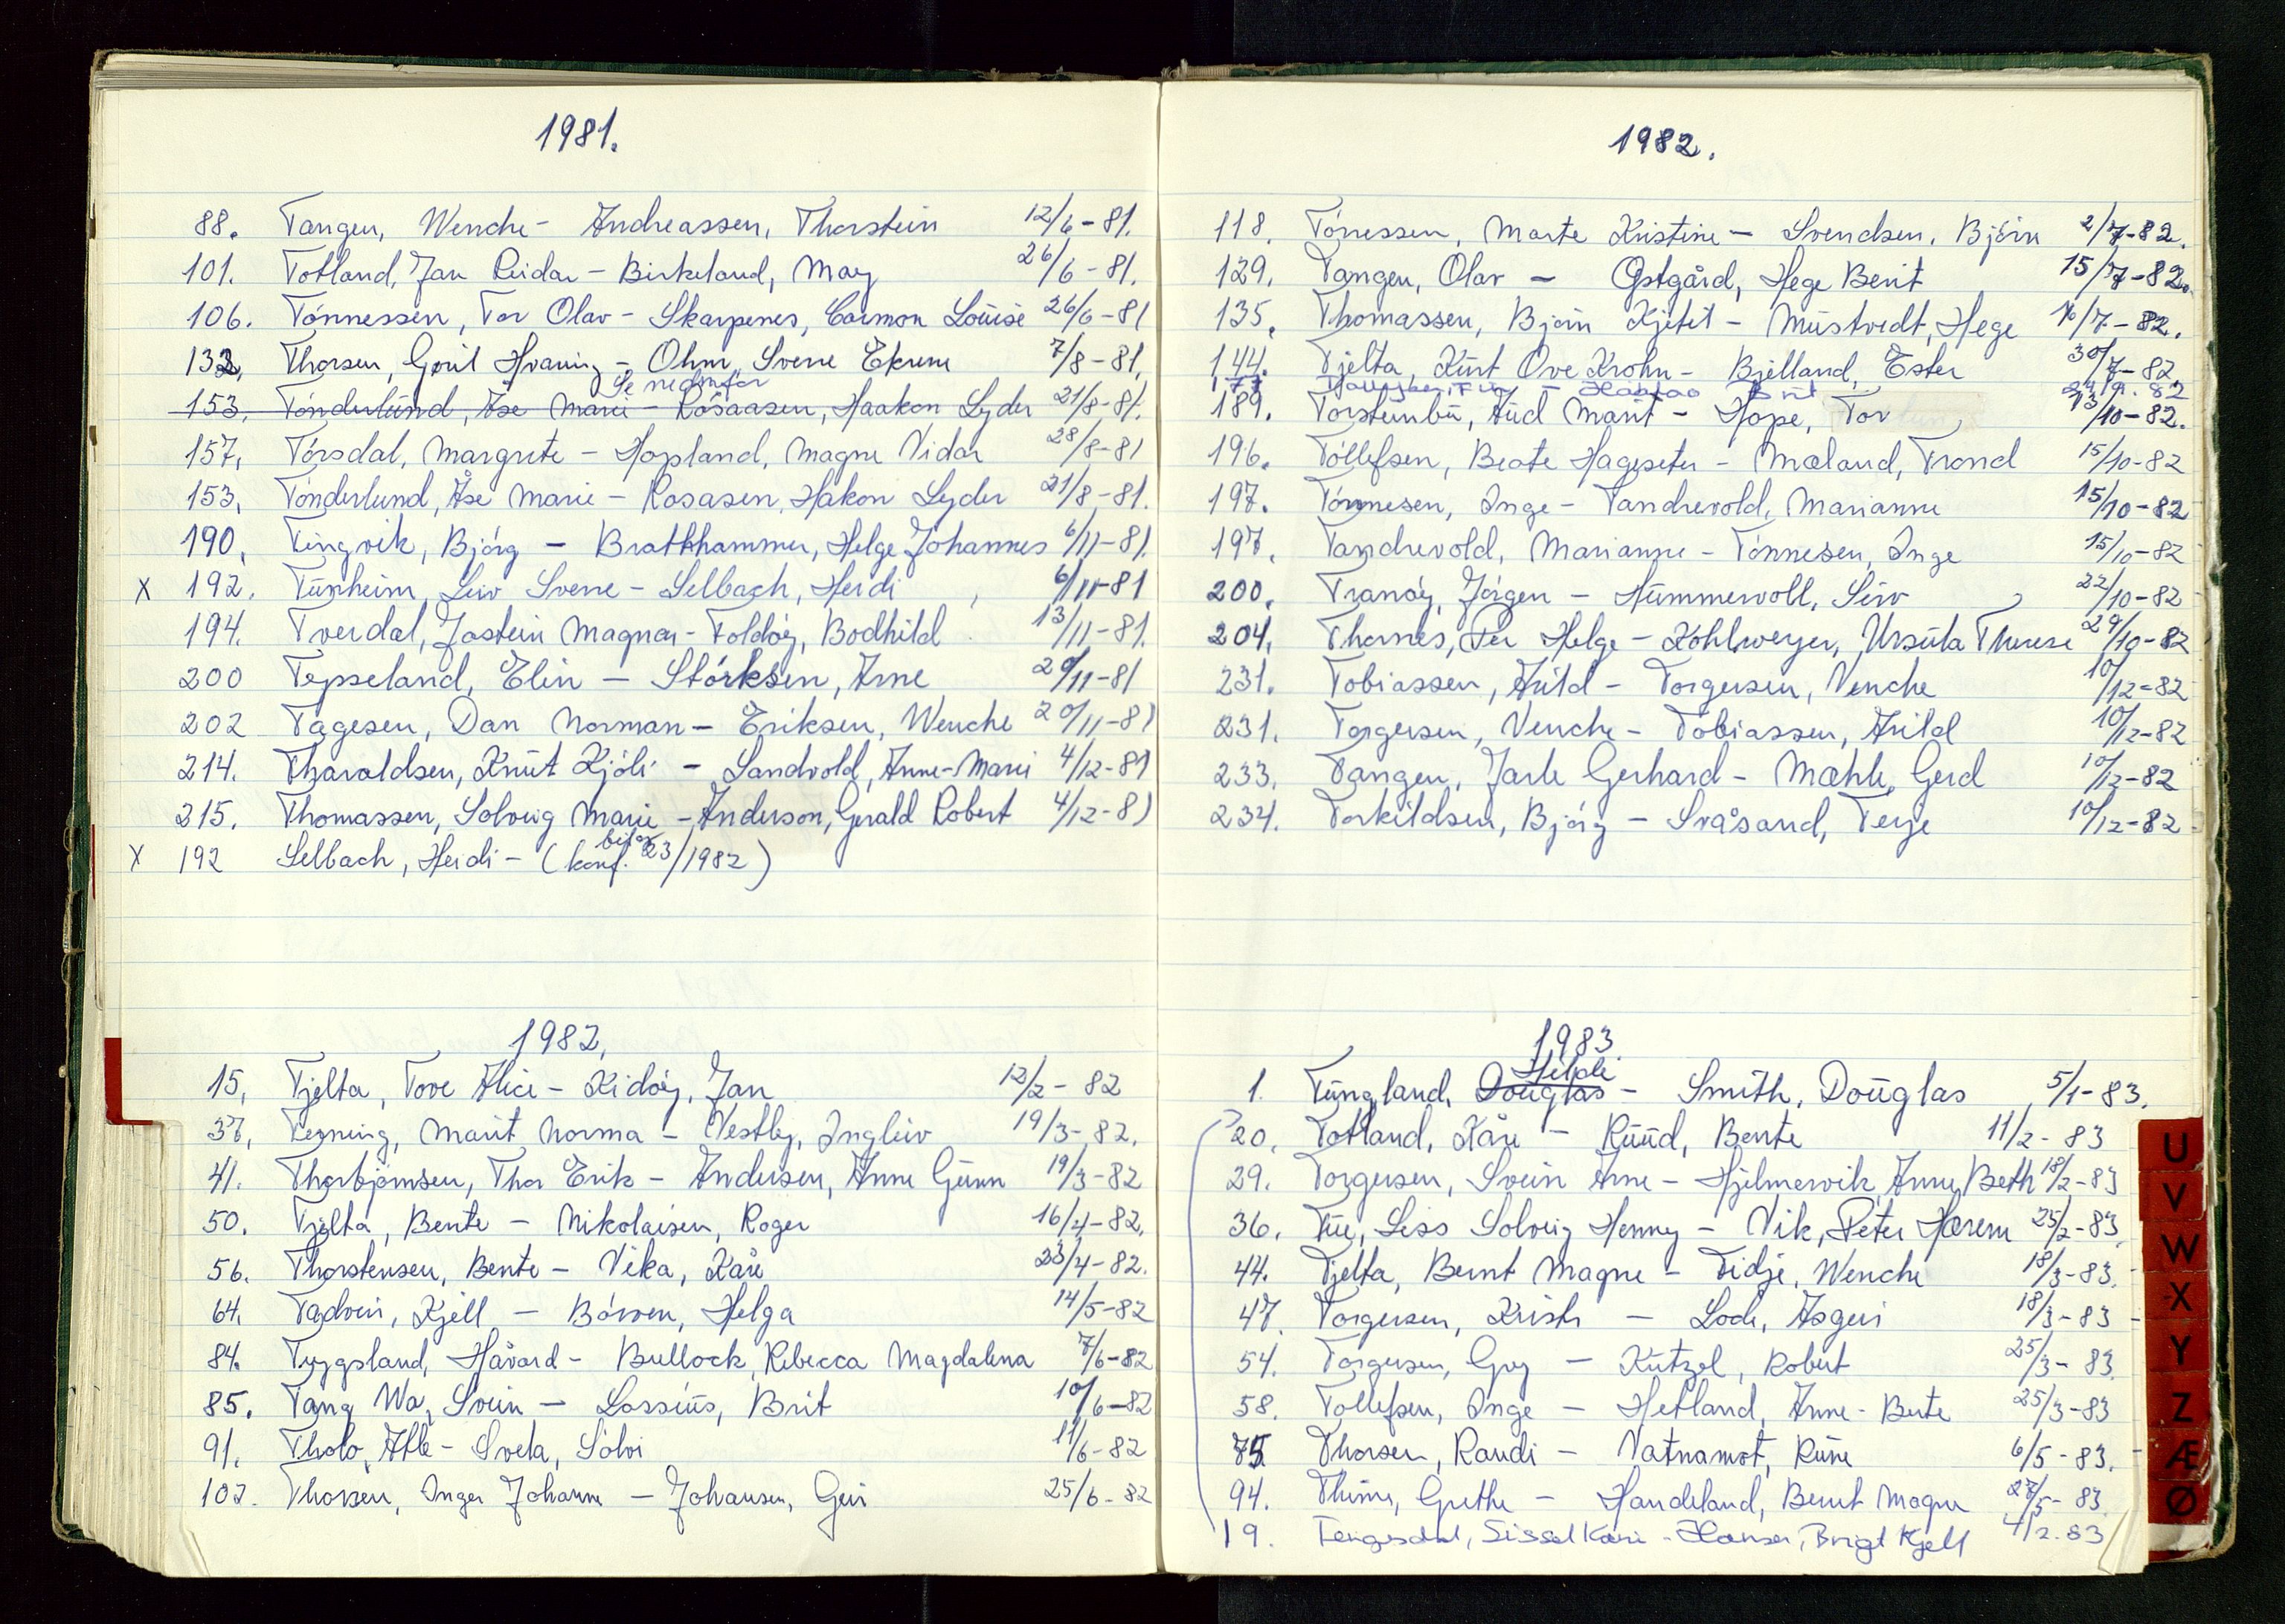 1981.
88. Tangen, Wenche - Andreassen, Thorstein 12/6-81.
101. Totland, Jan Reidar - Birkeland, May 26/6-81.
106. Tönnessen, Tor Olav - Skarpenes, Carmon Louise 26/6-81
132. Thorsen, Goril Hvaring - Ohm, Sverre Ekrem 7/8-81.
Se nedenfor
153. Tönderlund, Åse Marie - Rosaasen, Haakon Lyder 21/8-81.
157. Törsdal, Margrete - Hopland, Magne Vidar 28/8-81
153. Tönderlund, Åse Marie - Rosasen, Håkon Lyder 21/8-81.
190. Tingvik, Björg - Bratthammer, Helge Johannes 6/11-81.
X 192. Tunheim, Leiv Sverre - Selbach, Heidi 6/11-81
194. Tverdal, Jostein Magnar - Foldöy, Bodhild 13/11-81.
200 Tepseland, Elin - Störksen, Arne 20/11-81
202 Tagesen, Dan Norman - Eriksen, Wenche 20/11-81
214. Tharaldsen, Knut Kjöli - Sandvold, Anne-Mari 4/12-81
215. Thomassen, Solveig Marie - Anderson, Gerald Robert 4/12-81
X 192 Selbach, Heidi - (konf. 23/1982)
1982.
15. Tjelta, Tove Alice - Kidöy, Jan 12/2-82
37. Tegning, Marit Norma - Vestby, Ingleiv 19/3-82.
41. Thorbjörnsen, Thor Erik - Andersen, Anne Gunn 19/3-82
50. Tjelta, Bente - Nikolaisen, Roger 16/4-82.
56. Thorstensen, Bente - Vika, Kåre 23/4-82.
64. Tadvei, Kjell - Börven, Helga 14/5-82
84. Tryggsland, Håvard - Bullock, Rebecca Magdalena 7/6-82
85. Tang Wa, Svein - Lossius, Brit 10/6-82
91. Tholo, Atle - Svela, Sölvi 11/6-82
102. Thorsen, Inger Johanne - Johansen, Geir 25/6-82
1982.
118. Tönessen, Marte Kristine - Svendsen, Björn 2/7-82.
129. Tangen, Olav - Østgård, Hege Berit 15/7-82.
135. Thomassen, Björn Kjetil - Mustvedt, Hege 16/7-82.
144. Tjelta, Kurt Ove Krohn - Bjelland, Ester 30/7-82
177 - 24/9.82
189. Torsteinbu, Aud Marit - Hope, Tor 13/10-82.
196. Töllefsen, Beate Hageseter - Mæland, Trond 15/10-82
197. Tönnesen, Inge - Tandrevold, Marianne 15/10-82
197. Tandrevold, Marianne - Tönnesen, Inge 15/10-82
200. Tranöy, Jörgen - Hummervoll, Siw 22/10-82
204. Thornes, Per Helge - Kohlweyer, Ursula Therese 29/10-82
231. Tobiassen, Arild - Torgersen, Venche 10/12-82
231. Torgersen, Venche - Tobiassen, Arild 10/12-82
233. Tangen, Jarle Gerhard - Mæhle, Gerd 10/12-82
234. Torkildsen, Björg - Svåsand, Terje 10/12-82
1983
Hilde
1. Tungland, Douglas - Smith, Douglas 5/1-83.
20. Totland, Kåre - Ruud, Bente 11/2-83
29. Torgersen, Svein Arne - Hjelmervik, Anne Beth 18/2-83
36. Tue, Liss Solveig Henny - Vik, Peter Harem 25/2-83
44. Tjelta, Bernt Magne - Tidje, Wenche 18/3-83.
47. Torgersen, Kristi - Lode, Asgeir 18/3-83
54. Torgersen, Gry - Kützel, Robert 25/3-83.
58. Tollefsen, Inge - Hetland, Anne-Berte 25/3-83
75. Thorsen, Randi - Vatnamot, Rune 6/5-83.
94. Thime, Grethe - Handeland, Bernt Magne 27/5-83.
19. Tengesdal, Sissel Kari - Hansen, Brigt Kjell 4/2.83
U
V
W
X
Y
Z
Æ
Ø